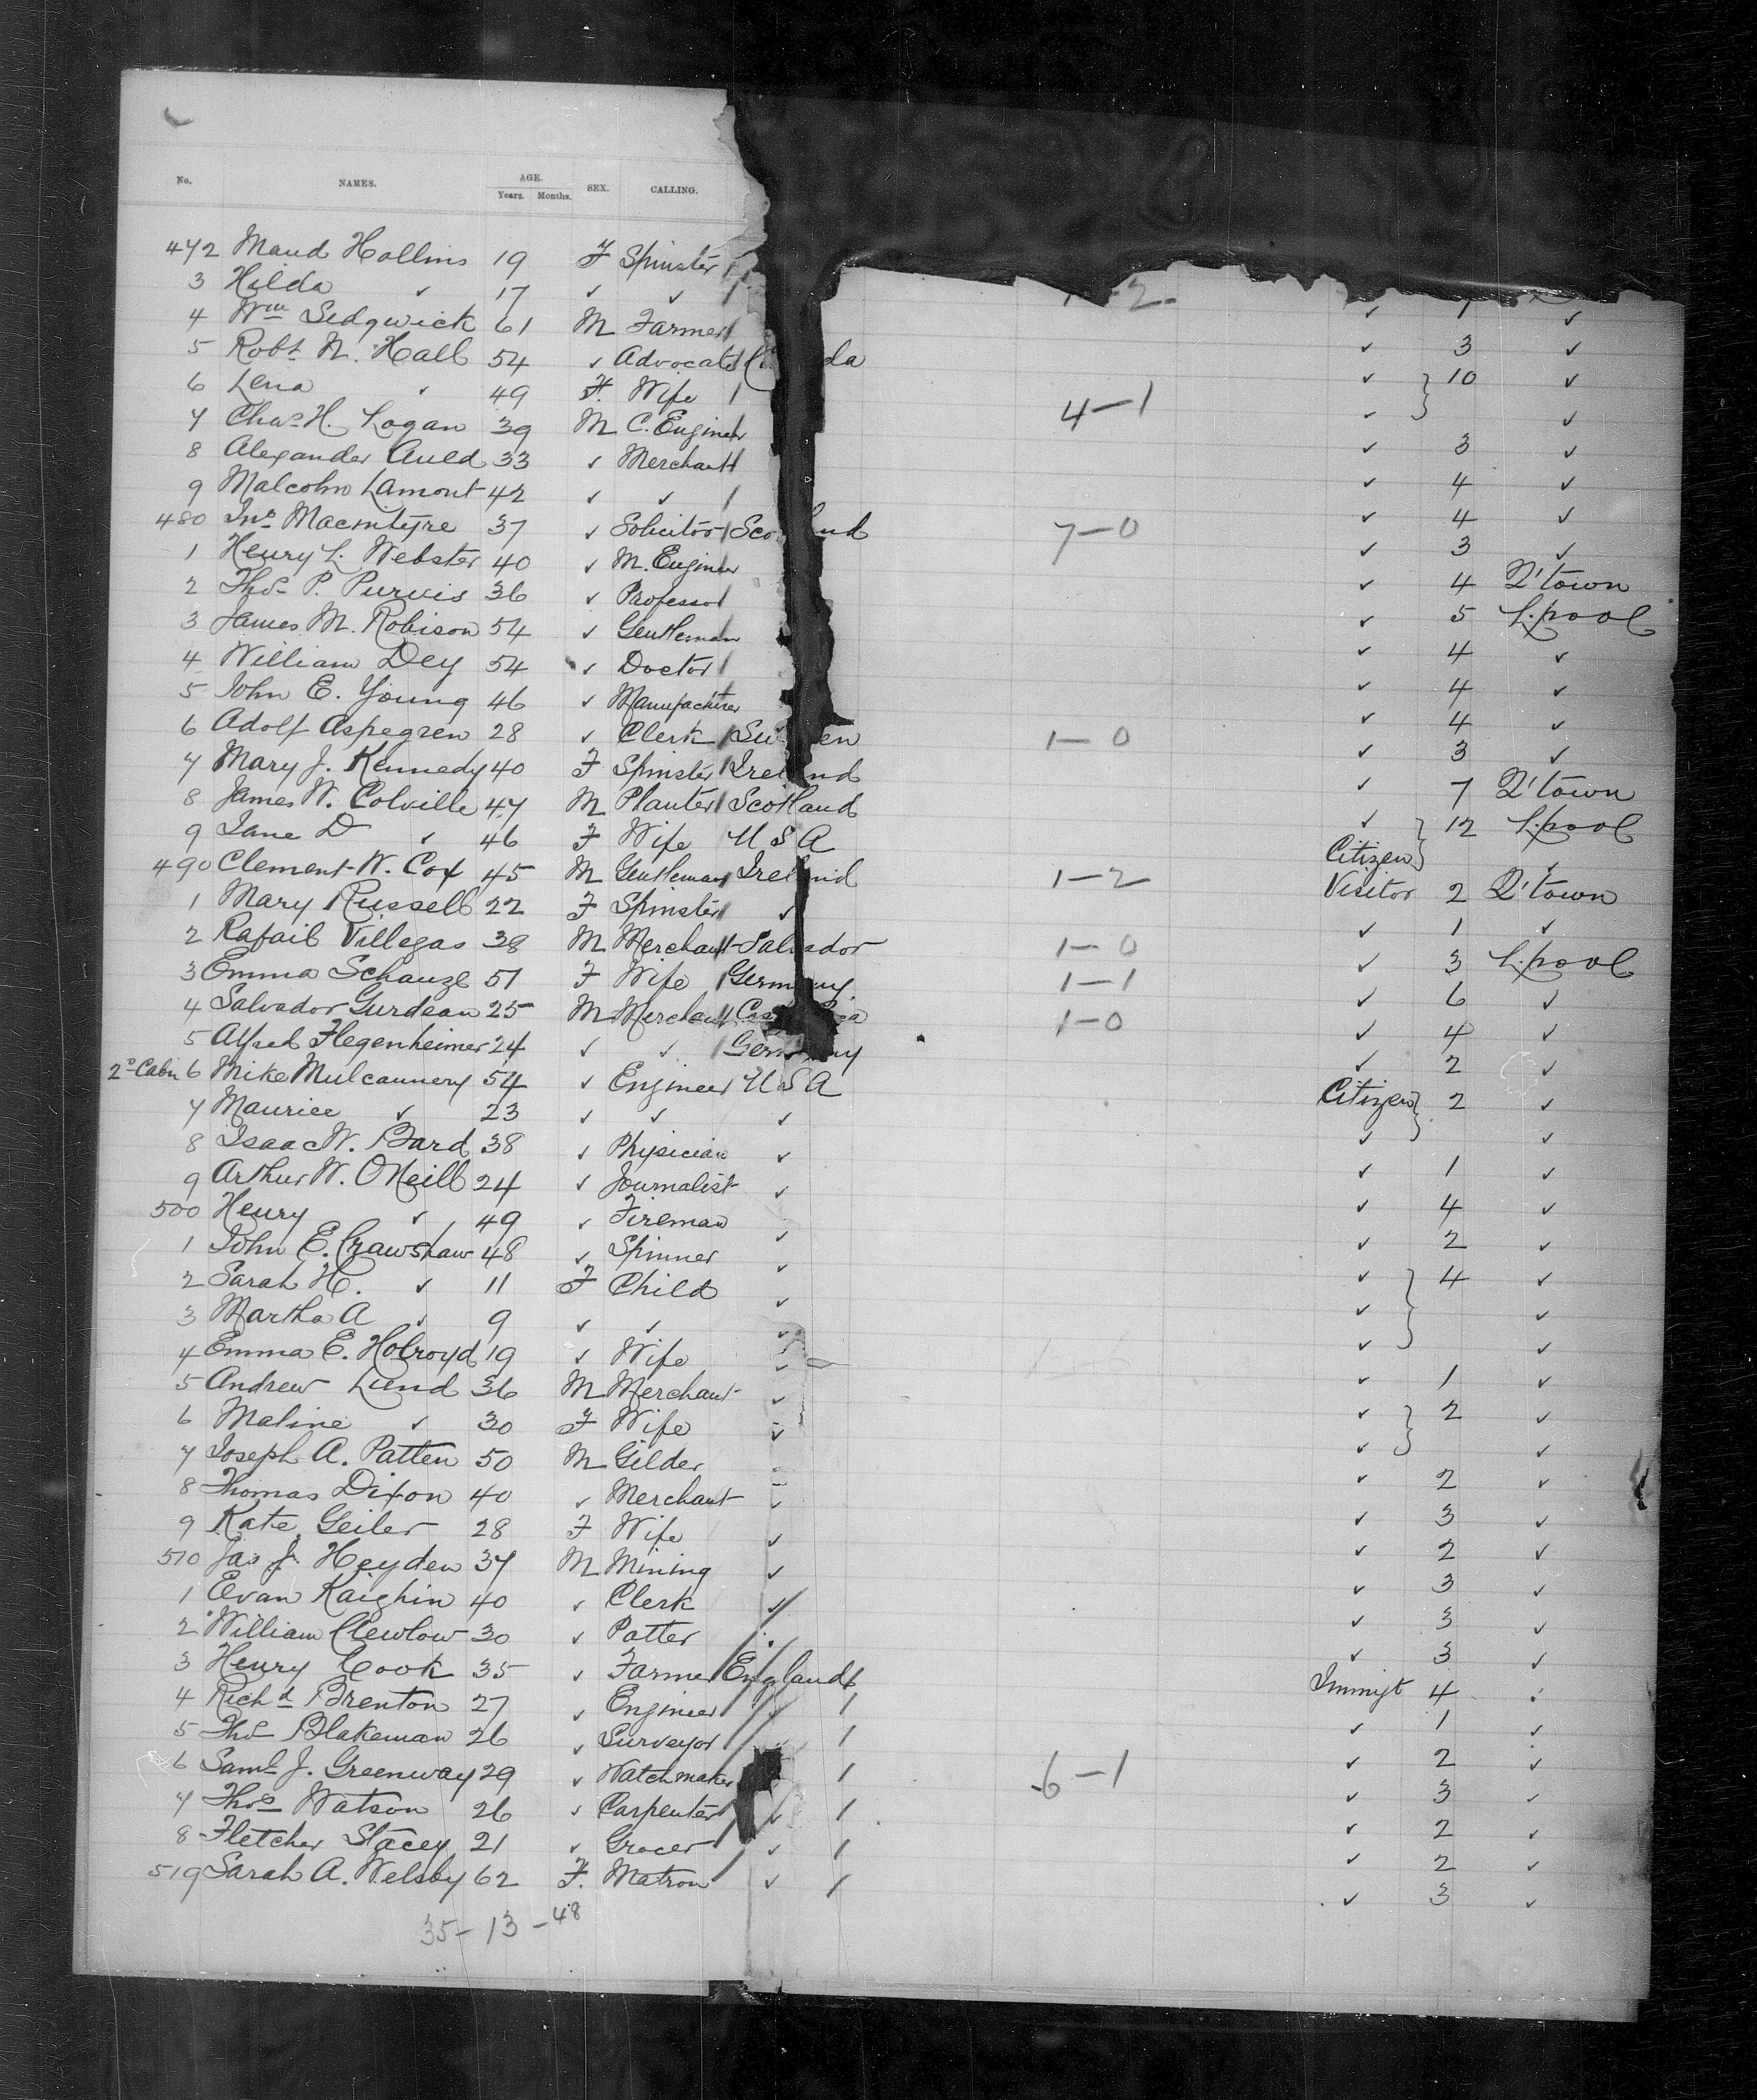 No. NAMES. AGE. Years. Months. SEX. CALLING.
472 Maud Hollins 19 F Spinster /
3 Hilda ✓ 17 ✓ ✓ / 2
4 Wm Sedgwick 61 M Farmer / ✓ 1 ✓
5 Robt N. Hall 54 ✓ Advocate / da ✓ 3 ✓
6 Lena ✓ 49 F. Wife / ✓ } 10 ✓
7 Chas H. Logan 39 M C. Engineer / 4-1 ✓ ✓
8 Alexander Auld 33 ✓ Merchant / ✓ 3 ✓
9 Malcolm Lamont 42 ✓ ✓ / ✓ 4 ✓
480 Jno Macintyre 37 ✓ Solicitor / Sco nd 7-0 ✓ 4 ✓
1 Henry L. Webster 40 ✓ M. Engineer / ✓ 3 ✓
2 Thos P. Purvis 36 ✓ Professor / ✓ 4 Q'town
3 James M. Robison 54 ✓ Gentleman / ✓ 5 L.pool
4 William Dey 54 ✓ Doctor / ✓ 4 ✓
5 John E. Young 46 ✓ Manufacturer ✓ 4 ✓
6 Adolf Aspegren 28 ✓ Clerk / Sw en 1-0 ✓ 4 ✓
7 Mary J. Kennedy 40 F Spinster / Ireland ✓ 3 ✓
8 James W. Colville 47 M Planter / Scotland ✓ 7 Q'town
9 Jane D ✓ 46 F Wife U S A ✓ } 12 L.pool
490 Clement W. Cox 45 M Gentleman / Ireland 1-2 Citizen ✓
1 Mary Russell 22 F Spinster / ✓ Visitor 2 Q'town
2 Rafail Villegas 38 M Merchant / Salvador 1-0 ✓ 1 ✓
3 Emma Schanze 51 F Wife / Germany 1-1 ✓ 3 L.pool
4 Salvador Gurdean 25 M Merchant / Cos a 1-0 ✓ 6 ✓
5 Alfred Flegenheimer 24 ✓ ✓ / Germany ✓ 4 ✓
2d Cabin 6 Mike Mulcannery 54 ✓ Engineer U S A ✓ 2 ✓
7 Maurice ✓ 23 ✓ ✓ ✓ Citizen } 2 ✓
8 Isaac W. Bard 38 ✓ Physician ✓ ✓ ✓
9 Arthur W. O'Neill 24 ✓ Journalist ✓ ✓ 1 ✓
500 Henry ✓ 49 ✓ Fireman ✓ ✓ 4 ✓
1 John E. Crawshaw 48 ✓ Spinner ✓ ✓ 2 ✓
2 Sarah H. ✓ 11 F Child ✓ ✓ } 4 ✓
3 Martha A ✓ 9 ✓ ✓ ✓ ✓ ✓
4 Emma E. Holroyd 19 ✓ Wife ✓ ✓ ✓
5 Andrew Lund 36 M Merchant ✓ ✓ 1 ✓
6 Maline ✓ 30 F Wife ✓ ✓ } 2 ✓
7 Joseph A. Patten 50 M Gilder ✓ ✓
8 Thomas Dixon 40 ✓ Merchant ✓ ✓ 2 ✓
9 Kate Geiler 28 F Wife ✓ ✓ 3 ✓
510 Jas J. Heyden 37 M Mining ✓ ✓ 2 ✓
1 Evan Kaighin 40 ✓ Clerk ✓ ✓ 3 ✓
2 William Clewlow 30 ✓ Potter ✓ 3 ✓
3 Henry Cook 35 ✓ Farmer England / ✓ 3 ✓
4 Richd Brenton 27 ✓ Engineer / ✓ / Immigt 4 ✓
5 Thos Blakeman 26 ✓ Surveyor / ✓ / ✓ 1 ✓
6 Saml J. Greenway 29 ✓ Watchmaker / 6-1 ✓ 2 ✓
7 Thos Watson 26 ✓ Carpenter / ✓ / ✓ 3 ✓
8 Fletcher Stacey 21 ✓ Grocer / ✓ / ✓ 2 ✓
519 Sarah A. Welsby 62 F. Matron / ✓ / ✓ 2 ✓
✓ 3 ✓
35-13-48